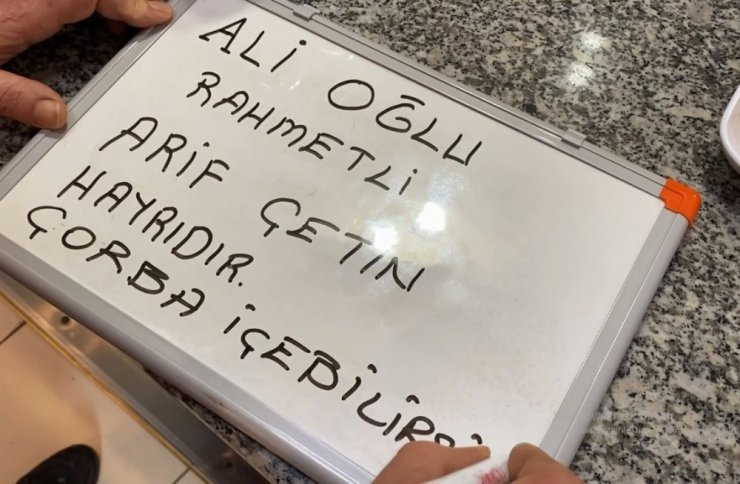 ALİ OĞLU
RAHMETLİ
ARİF ÇETİN
HAYRIDIR.
ÇORBA İÇEBİLİRSİ